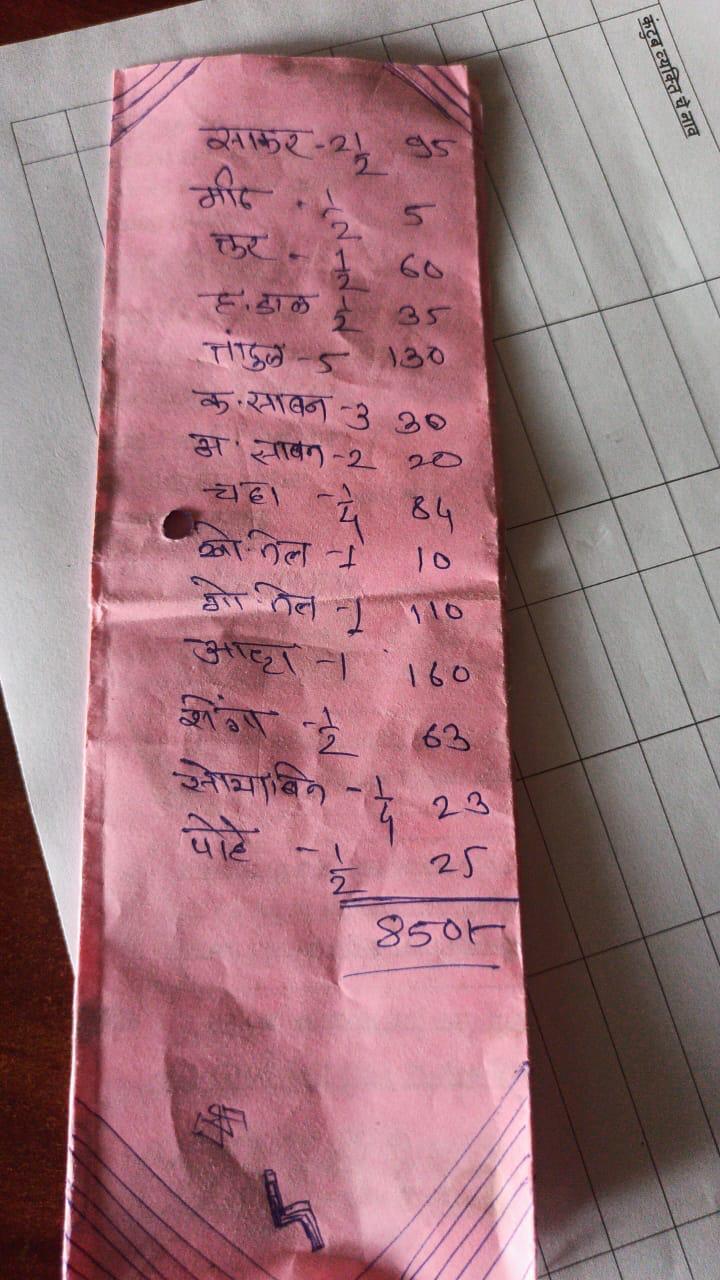 कंटुंब व्यक्ति चे नाव
साकर - 2 1/2 95
मीठ - 1/2 5
तुर - 1/2 60
ह. डाळ 1/2 35
तांदुळ - 5 130
क. साबन - 3 30
अ. साबन - 2 20
चहा - 1/4 84
खो. तेल - 1 10
गो. तेल - 1 110
आटा - 1 160
शेंगा - 1/2 63
सोयाबिन - 1/4 23
पोहे - 1/2 25
850r